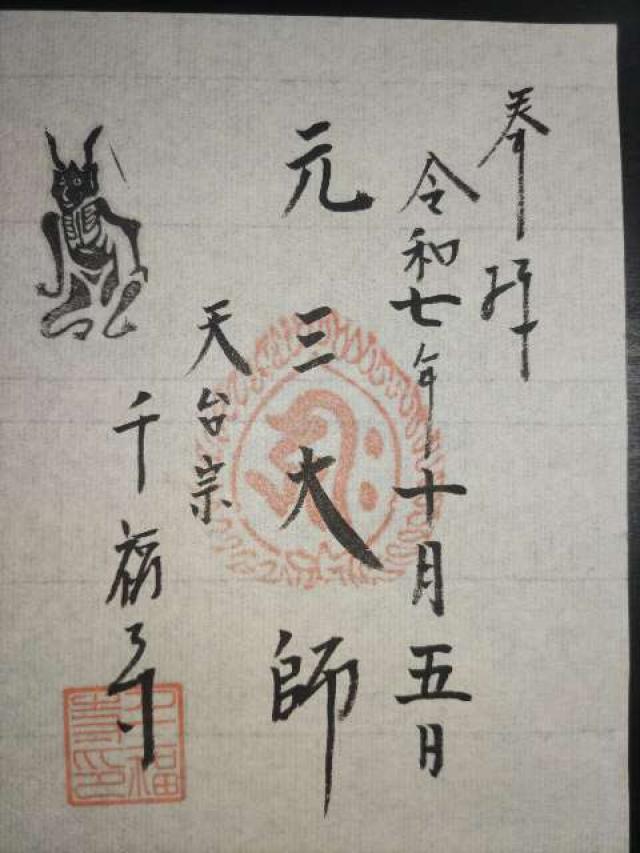 奉拝
令和七年十月五日
元三大師
天台宗
千福寺
千福寺印